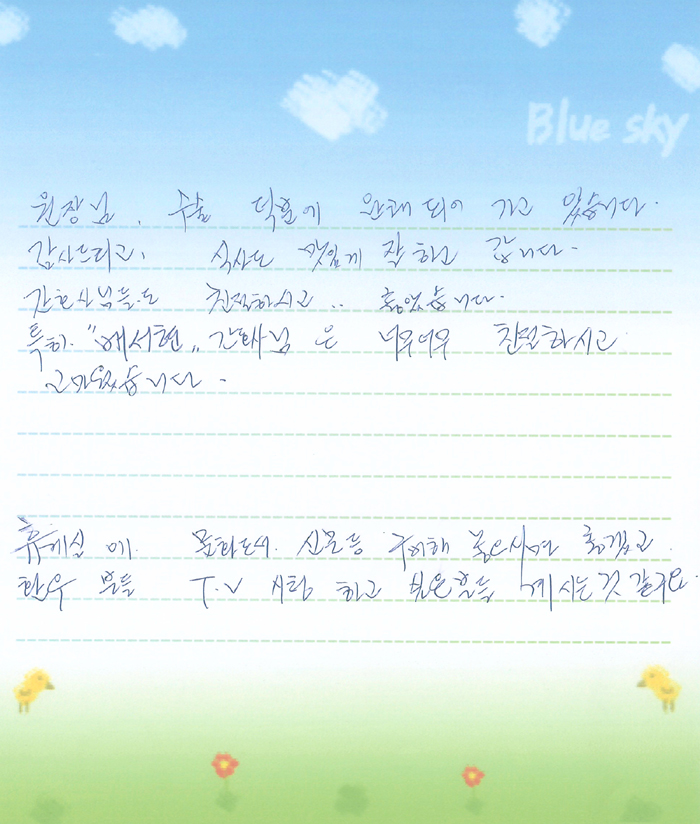 Blue sky
원장님, 수술 덕분에 완쾌되어 가고 있습니다.
감사드리고, 식사도 맛있게 잘 하고 갑니다.
간호사님들도 친절하시고.. 좋았습니다.
특히. "예서현" 간호사님은 너무너무 친절하시고
고마웠습니다.
휴게실에. 문화도서. 신문등 구비해 놓으시면 좋겠고.
환우분들 T.V 시청하고 싶은분들 계시는것 같구요.